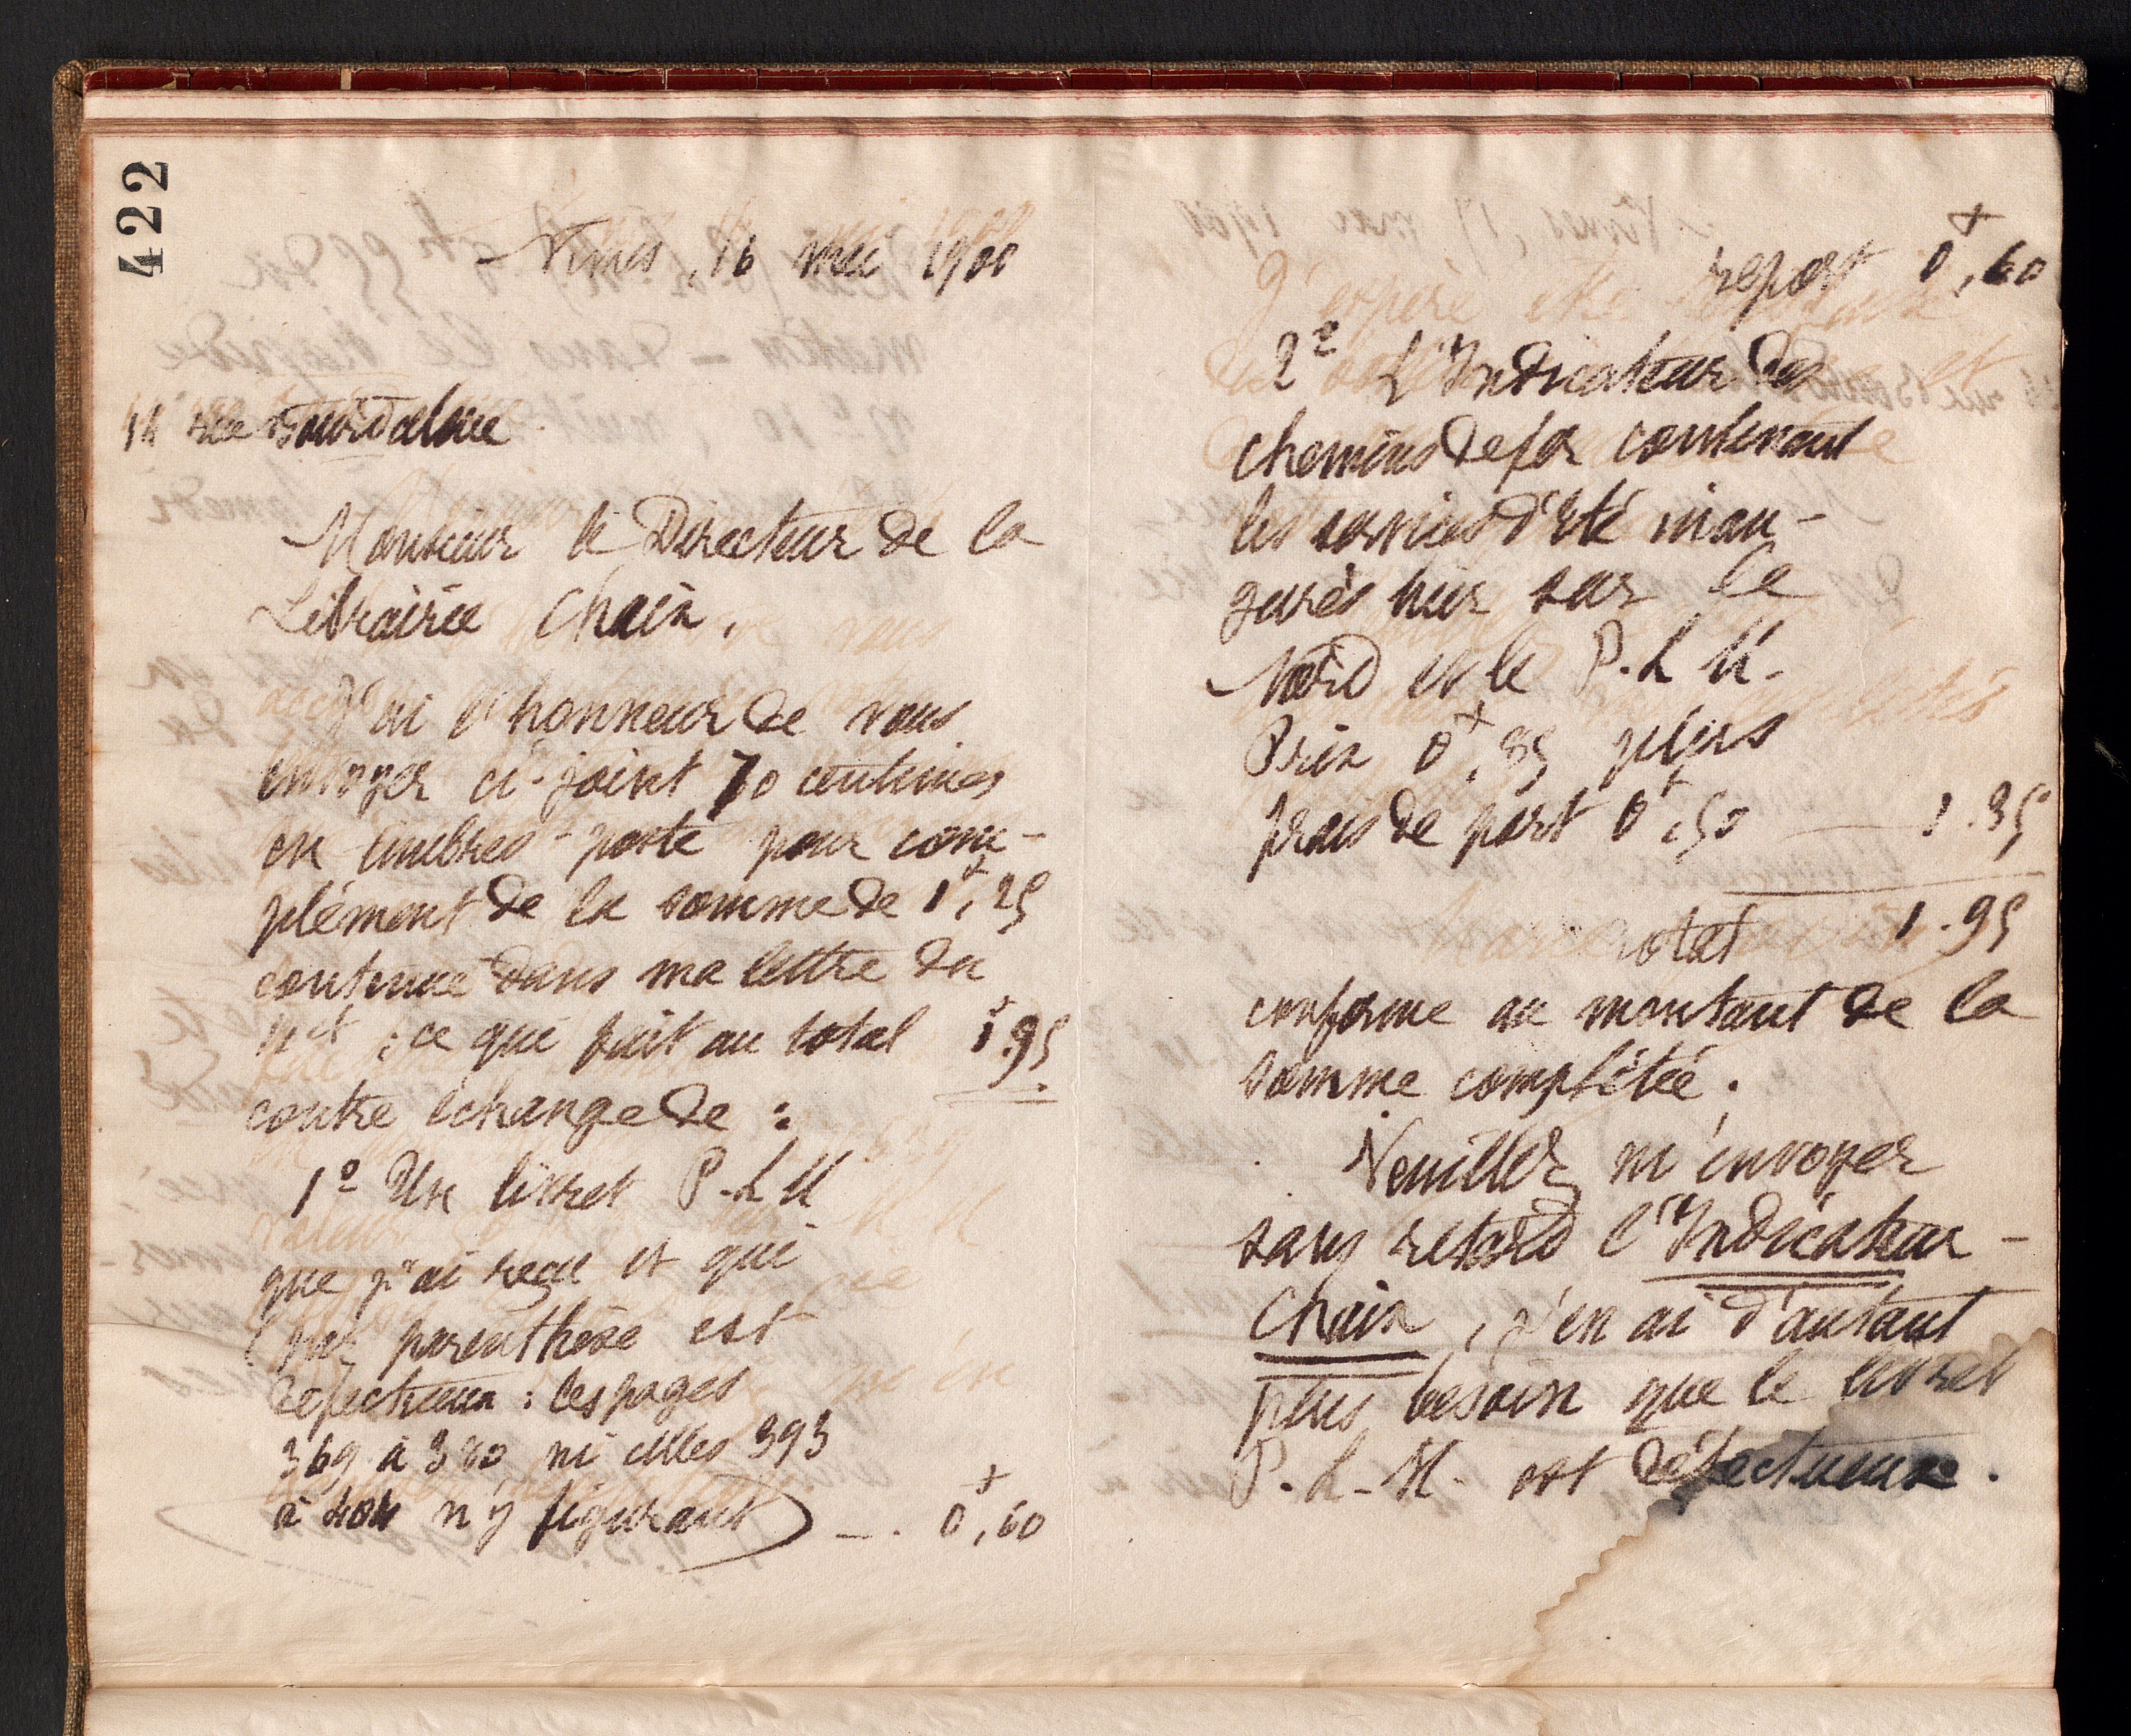 422
Nîmes, 16 mai 1900
14 rue Bourdaloue
Monsieur le Directeur de la
Librairie Chaix,
J'ai l'honneur de vous
envoyer ci-joint 70 centimes
en timbres-poste pour com-
plément de la somme de 1f,25
contenue dans ma lettre du
; ce qui fait au total 1f.95
contre échange de :
1º Un livret P-L M
que j'ai reçu et qui
(par parenthèse est
défectueux : les pages
369 à 380 ni celles 393
à 404 n'y figurant) - . 0f,60
report 0f,60
2º L'Indicateur des
chemins de fer contenant
les services d'été inau-
gurés hier sur le
Nord et le P.L M.
Prix 0f,85 plus
frais de port 0f,50 — 1.35
total 1.95
conforme au montant de la
somme complétée.
Veuillez m'envoyer
sans retard l'Indicateur-
Chaix, j'en ai d'autant
plus besoin que le livret
P.L-M. est défectueux.